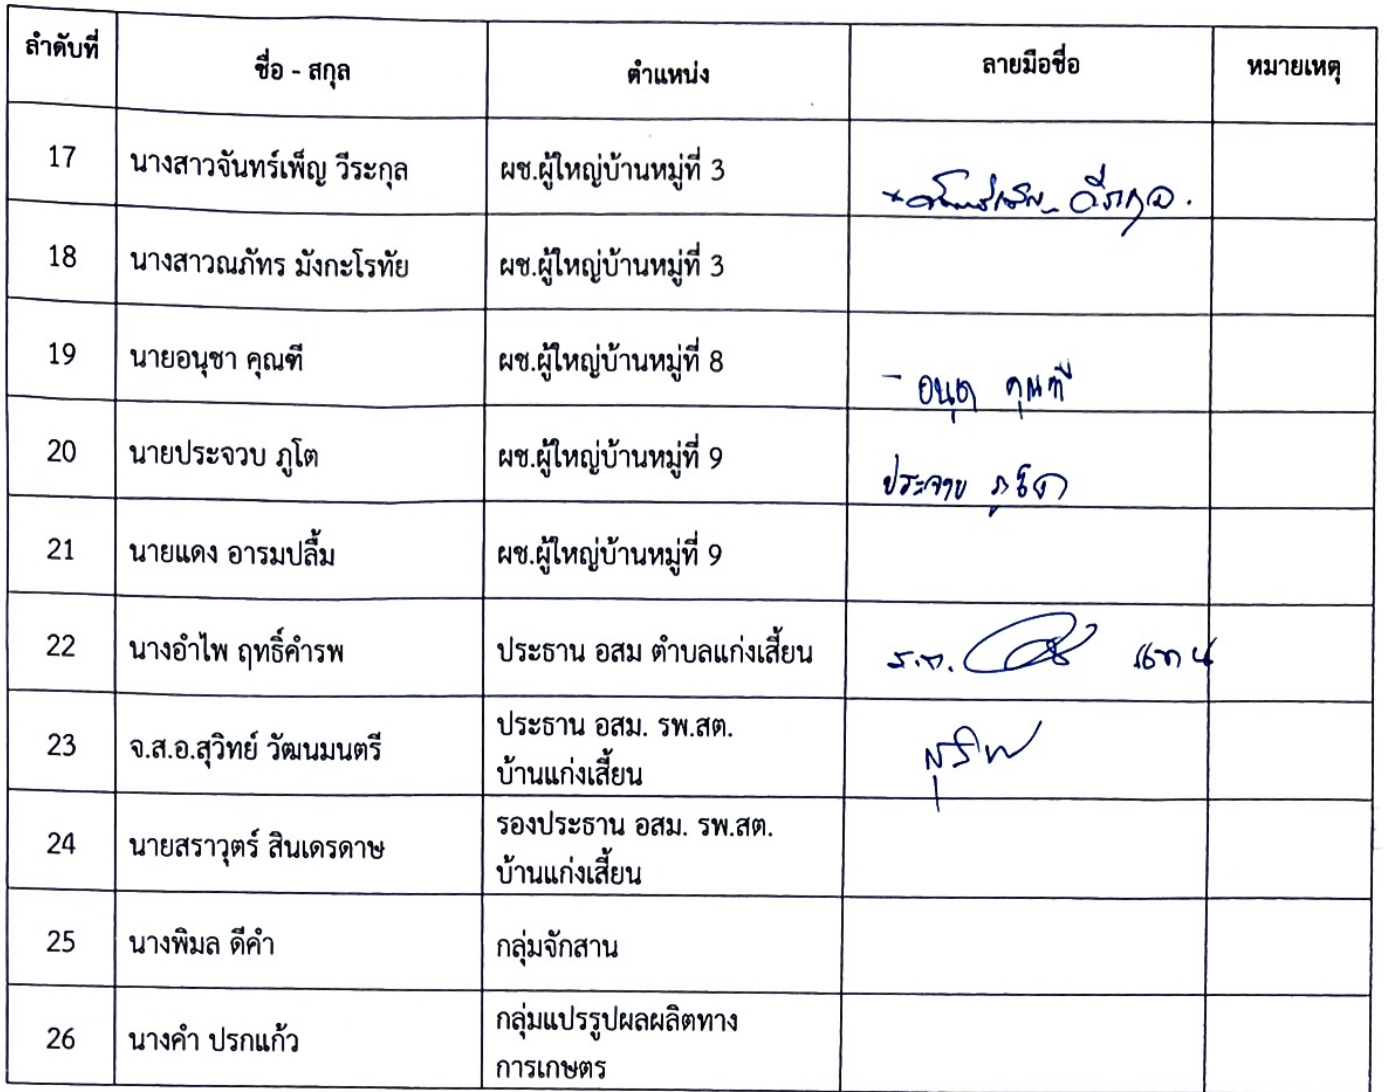 ลำดับที่ ชื่อ - สกุล ตำแหน่ง ลายมือชื่อ หมายเหตุ
17 นางสาวจันทร์เพ็ญ วีระกุล ผช.ผู้ใหญ่บ้านหมู่ที่ 3
18 นางสาวณภัทร มังกะโรทัย ผช.ผู้ใหญ่บ้านหมู่ที่ 3
19 นายอนุชา คุณฑี ผช.ผู้ใหญ่บ้านหมู่ที่ 8 - อนุชา คุณฑี
20 นายประจวบ ภูโต ผช.ผู้ใหญ่บ้านหมู่ที่ 9 ประจวบ ภูโต
21 นายแดง อารมปลื้ม ผช.ผู้ใหญ่บ้านหมู่ที่ 9
22 นางอำไพ ฤทธิ์คำรพ ประธาน อสม ตำบลแก่งเสี้ยน แทน
23 จ.ส.อ.สุวิทย์ วัฒนมนตรี ประธาน อสม. รพ.สต.
บ้านแก่งเสี้ยน
24 นายสราวุตร์ สินเดรดาษ รองประธาน อสม. รพ.สต.
บ้านแก่งเสี้ยน
25 นางพิมล ดีคำ กลุ่มจักสาน
26 นางคำ ปรกแก้ว กลุ่มแปรรูปผลผลิตทาง
การเกษตร